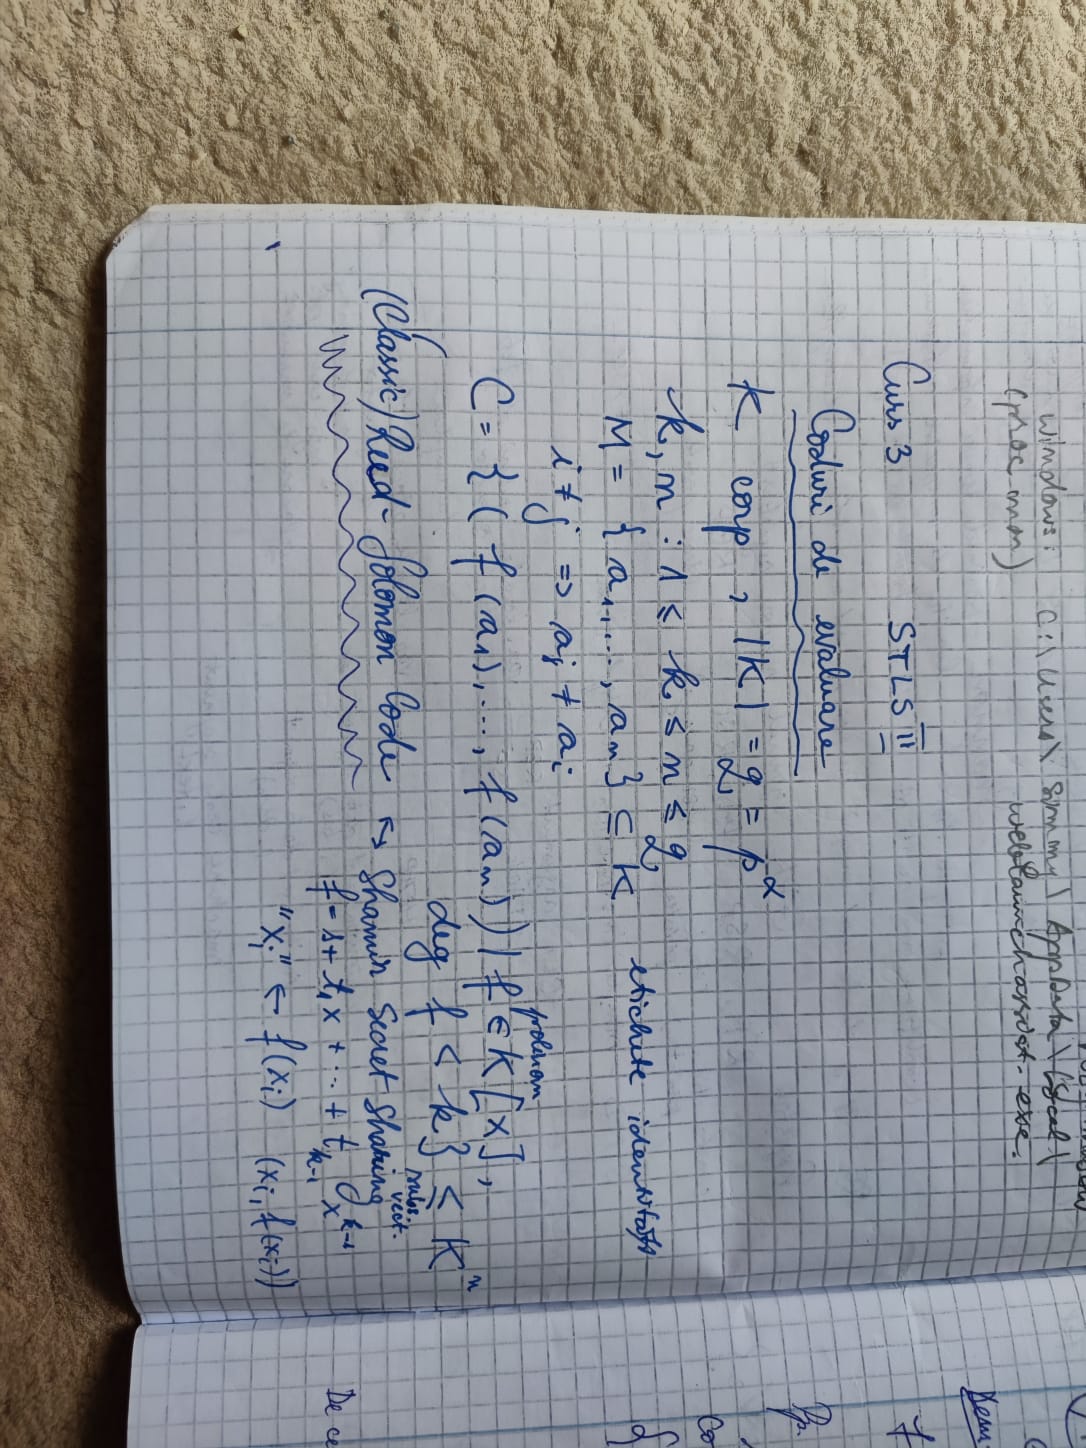 windows: C:\Users\Simmy\AppData\Local\
(proc mon) weblaunchassist.exe.
Curs 3 STLS II
Coduri de evaluare
K corp, |K| = q = p^α
k, n : 1 ≤ k ≤ n ≤ q
M = { a₁, ..., aₙ } ⊆ K etichete identități
i ≠ j => aⱼ ≠ aᵢ
polinom
C = { ( f(a₁), ..., f(aₙ) ) | f ∈ K[X],
deg f < k } ≤ Kⁿ
subs. vect.
(Classic) Reed-Solomon Code ↔ Shamir Secret Sharing
f = s + t₁x + ... + tₖ₋₁ x^{k-1}
"xᵢ" ← f(xᵢ) (xᵢ, f(xᵢ))
Dem
f
Pp.
Co
{
De ce